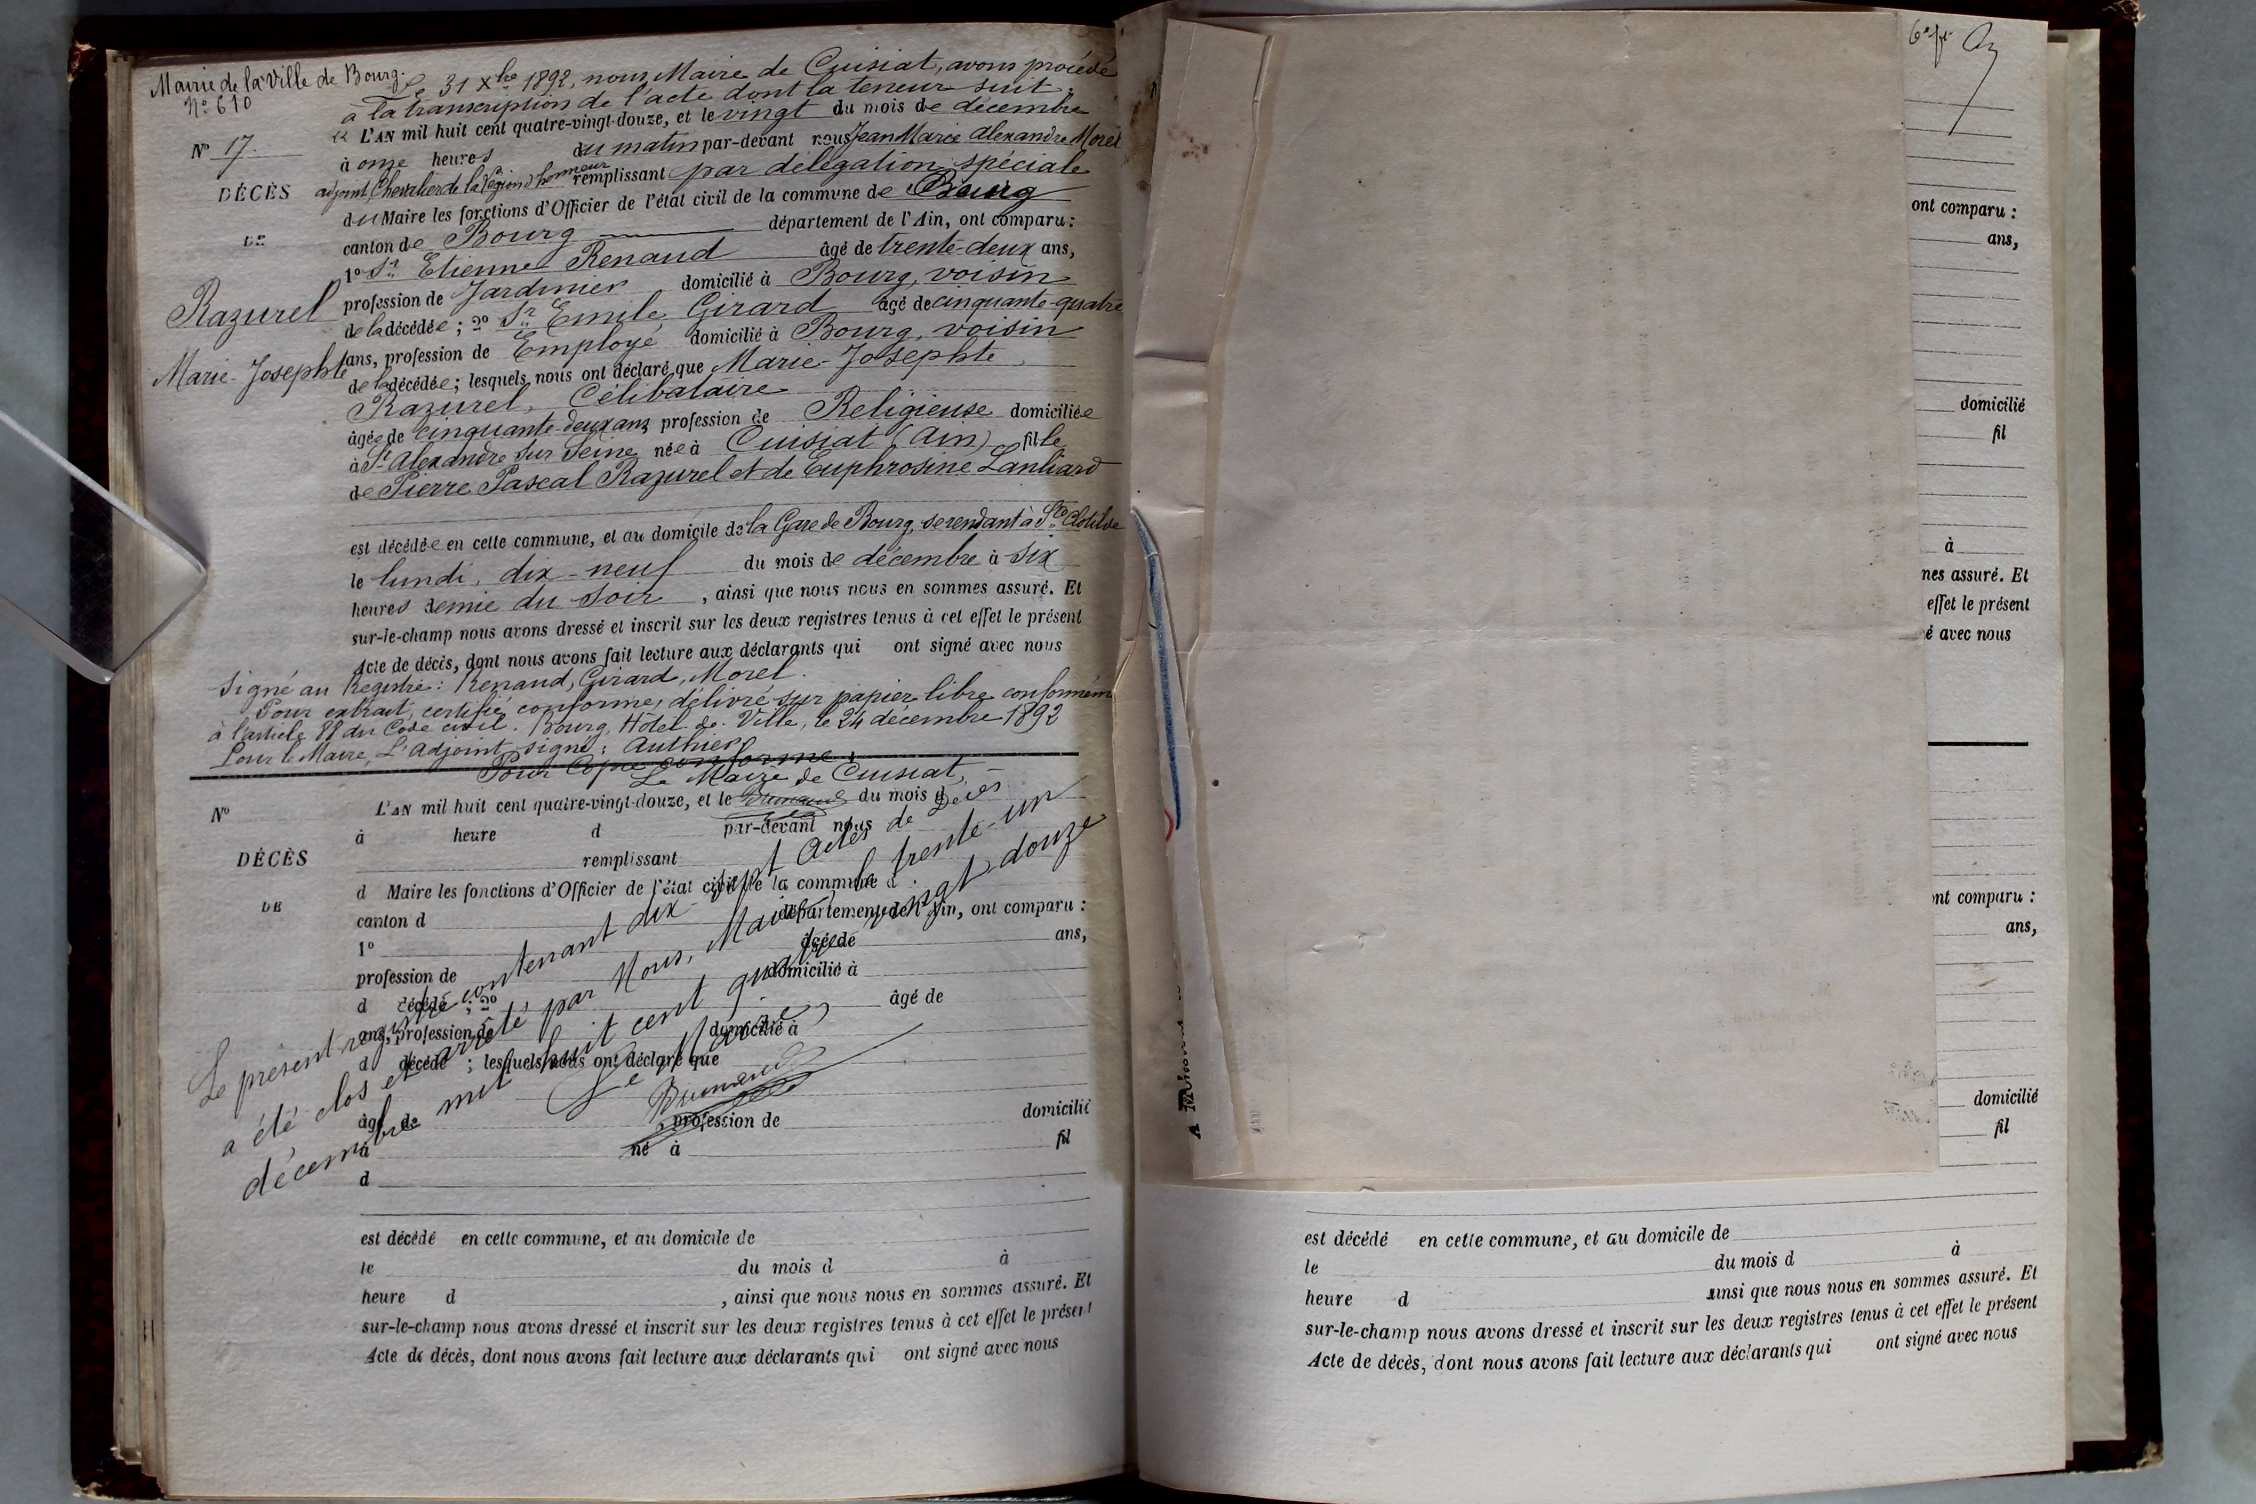 Mairie de la Ville de Bourg.
No 610
Le 31 Xbre 1892, nous Maire de Cuisiat, avons procédé
à la transcription de l'acte dont la teneur suit :
No 17.
DÉCÈS
DE
Razurel
Marie-Josephte
« L'AN mil huit cent quatre-vingt-douze, et le vingt du mois de décembre
à onze heures du matin par-devant nous Jean Marie Alexandre Morel
adjoint, Chevalier de la Légion d'honneur remplissant par délégation spéciale
du Maire les fonctions d'Officier de l'état civil de la commune de Bourg
canton de Bourg département de l'Ain, ont comparu :
1o Sr Etienne Renaud âgé de trente-deux ans,
profession de Jardinier domicilié à Bourg, voisin
de la décédée ; 2o Sr Emile Girard âgé de cinquante-quatre
ans, profession de Employé domicilié à Bourg, voisin
de la décédée ; lesquels nous ont déclaré que Marie-Josephte
Razurel, Célibataire
âgée de cinquante-deux ans profession de Religieuse domiciliée
à St Alexandre sur Seine née à Cuisiat (Ain) fille
de Pierre Pascal Razurel et de Euphrosine Lanliard
est décédée en cette commune, et au domicile de la Gare de Bourg, se rendant à Ste Clotilde
le lundi, dix-neuf du mois de décembre à six
heures demie du soir, ainsi que nous nous en sommes assuré. Et
sur-le-champ nous avons dressé et inscrit sur les deux registres tenus à cet effet le présent
Acte de décès, dont nous avons fait lecture aux déclarants qui ont signé avec nous
Signé au Registre : Renaud, Girard, Morel.
Pour extrait, certifié conforme, délivré sur papier libre conformém
à l'article 88 du Code civil. Bourg, Hôtel-de-Ville, le 24 décembre 1892
Pour le Maire, L'Adjoint signé : Authier
Pour Copie conforme :
Le Maire de Cuisiat,
No
DÉCÈS
DE
L'AN mil huit cent quatre-vingt-douze, et le du mois d
à heure d par-devant nous
remplissant
d Maire les fonctions d'Officier de l'état civil de la commune d
canton d département de l'Ain, ont comparu :
1o âgé de ans,
profession de domicilié à
d décédé ; 2o âgé de
ans, profession de domicilié à
d décédé ; lesquels nous ont déclaré que
âgé de profession de domicilié
à né à fil
d
Le présent registre contenant dix-sept actes de Décès
a été clos et arrêté par Nous, Maire, le trente-un
décembre mil huit cent quatre vingt douze
Le Maire,
est décédé en cette commune, et au domicile de
le du mois d à
heure d , ainsi que nous nous en sommes assuré. Et
sur-le-champ nous avons dressé et inscrit sur les deux registres tenus à cet effet le présent
Acte de décès, dont nous avons fait lecture aux déclarants qui ont signé avec nous
ont comparu :
ans,
domicilié
fil
à
nes assuré. Et
effet le présent
é avec nous
ont comparu :
ans,
domicilié
fil
est décédé en cette commune, et au domicile de
le du mois d à
heure d ainsi que nous nous en sommes assuré. Et
sur-le-champ nous avons dressé et inscrit sur les deux registres tenus à cet effet le présent
Acte de décès, dont nous avons fait lecture aux déclarants qui ont signé avec nous